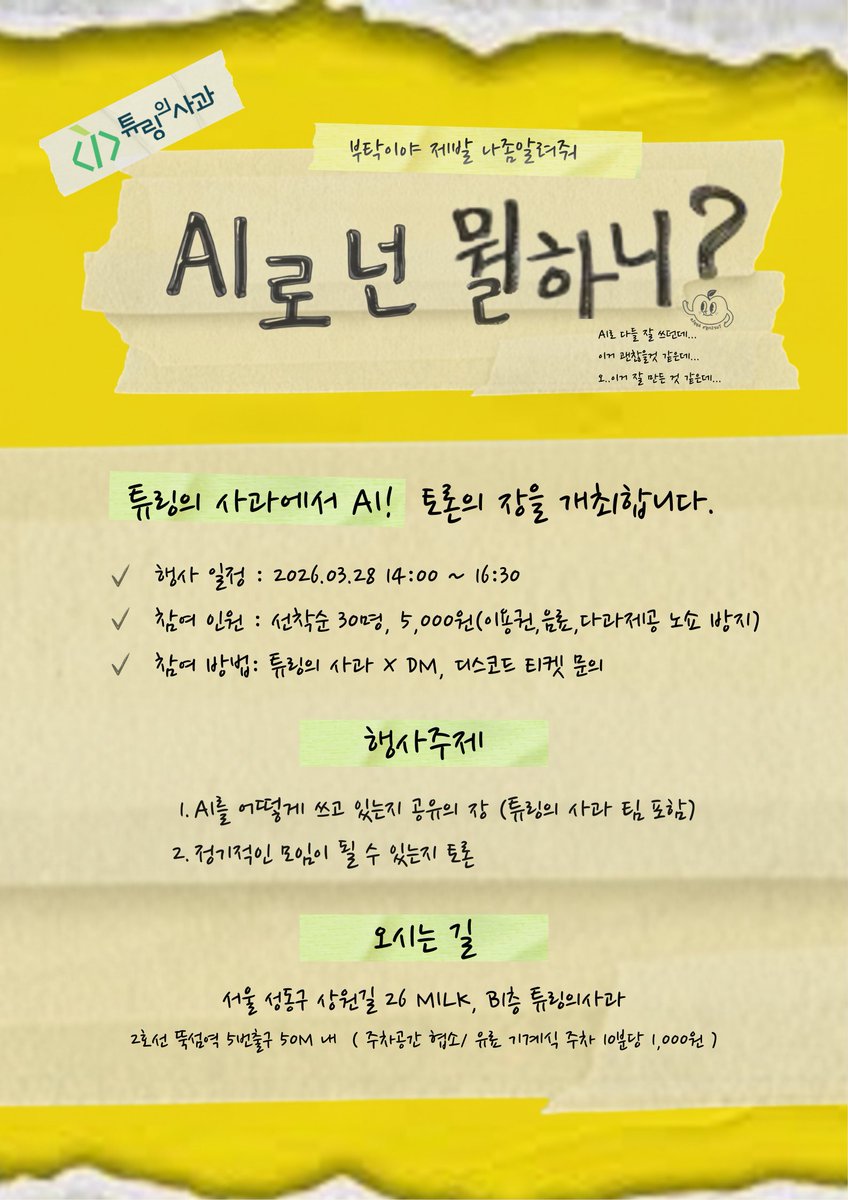 튜링의사과
부탁이야 제발 나좀알려줘
AI로 넌 뭘하니?
AI로 다들 잘 쓰던데...
이거 괜찮을것 같은데...
오..이거 잘 만든 것 같은데...
튜링의 사과에서 AI! 토론의 장을 개최합니다.
행사 일정 : 2026.03.28 14:00 ~ 16:30
참여 인원 : 선착순 30명, 5,000원(이용권,음료,다과제공 노쇼 방지)
참여 방법: 튜링의 사과 X DM, 디스코드 티켓 문의
행사주제
1. AI를 어떻게 쓰고 있는지 공유의 장 (튜링의 사과 팀 포함)
2. 정기적인 모임이 될 수 있는지 토론
오시는 길
서울 성동구 상원길 26 MILK, B1층 튜링의사과
2호선 뚝섬역 5번출구 50M 내 ( 주차공간 협소/ 유료 기계식 주차 10분당 1,000원 )